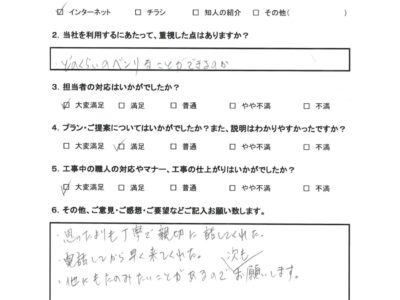 ☑ インターネット　□ チラシ　□ 知人の紹介　□ その他(　　　)
2. 当社を利用するにあたって、重視した点はありますか?
・どのくらいのベンリなことができるのか
3. 担当者の対応はいかがでしたか?
☑ 大変満足　□ 満足　□ 普通　□ やや不満　□ 不満
4. プラン・ご提案についてはいかがでしたか?また、説明はわかりやすかったですか?
□ 大変満足　☑ 満足　□ 普通　□ やや不満　□ 不満
5. 工事中の職人の対応やマナー、工事の仕上がりはいかがでしたか?
☑ 大変満足　□ 満足　□ 普通　□ やや不満　□ 不満
6. その他、ご意見・ご感想・ご要望などご記入お願い致します。
・思ったよりも丁寧で親切に話してくれた。
・電話してから早く来てくれた。
・他にもたのみたいことがあるので次もお願いします。